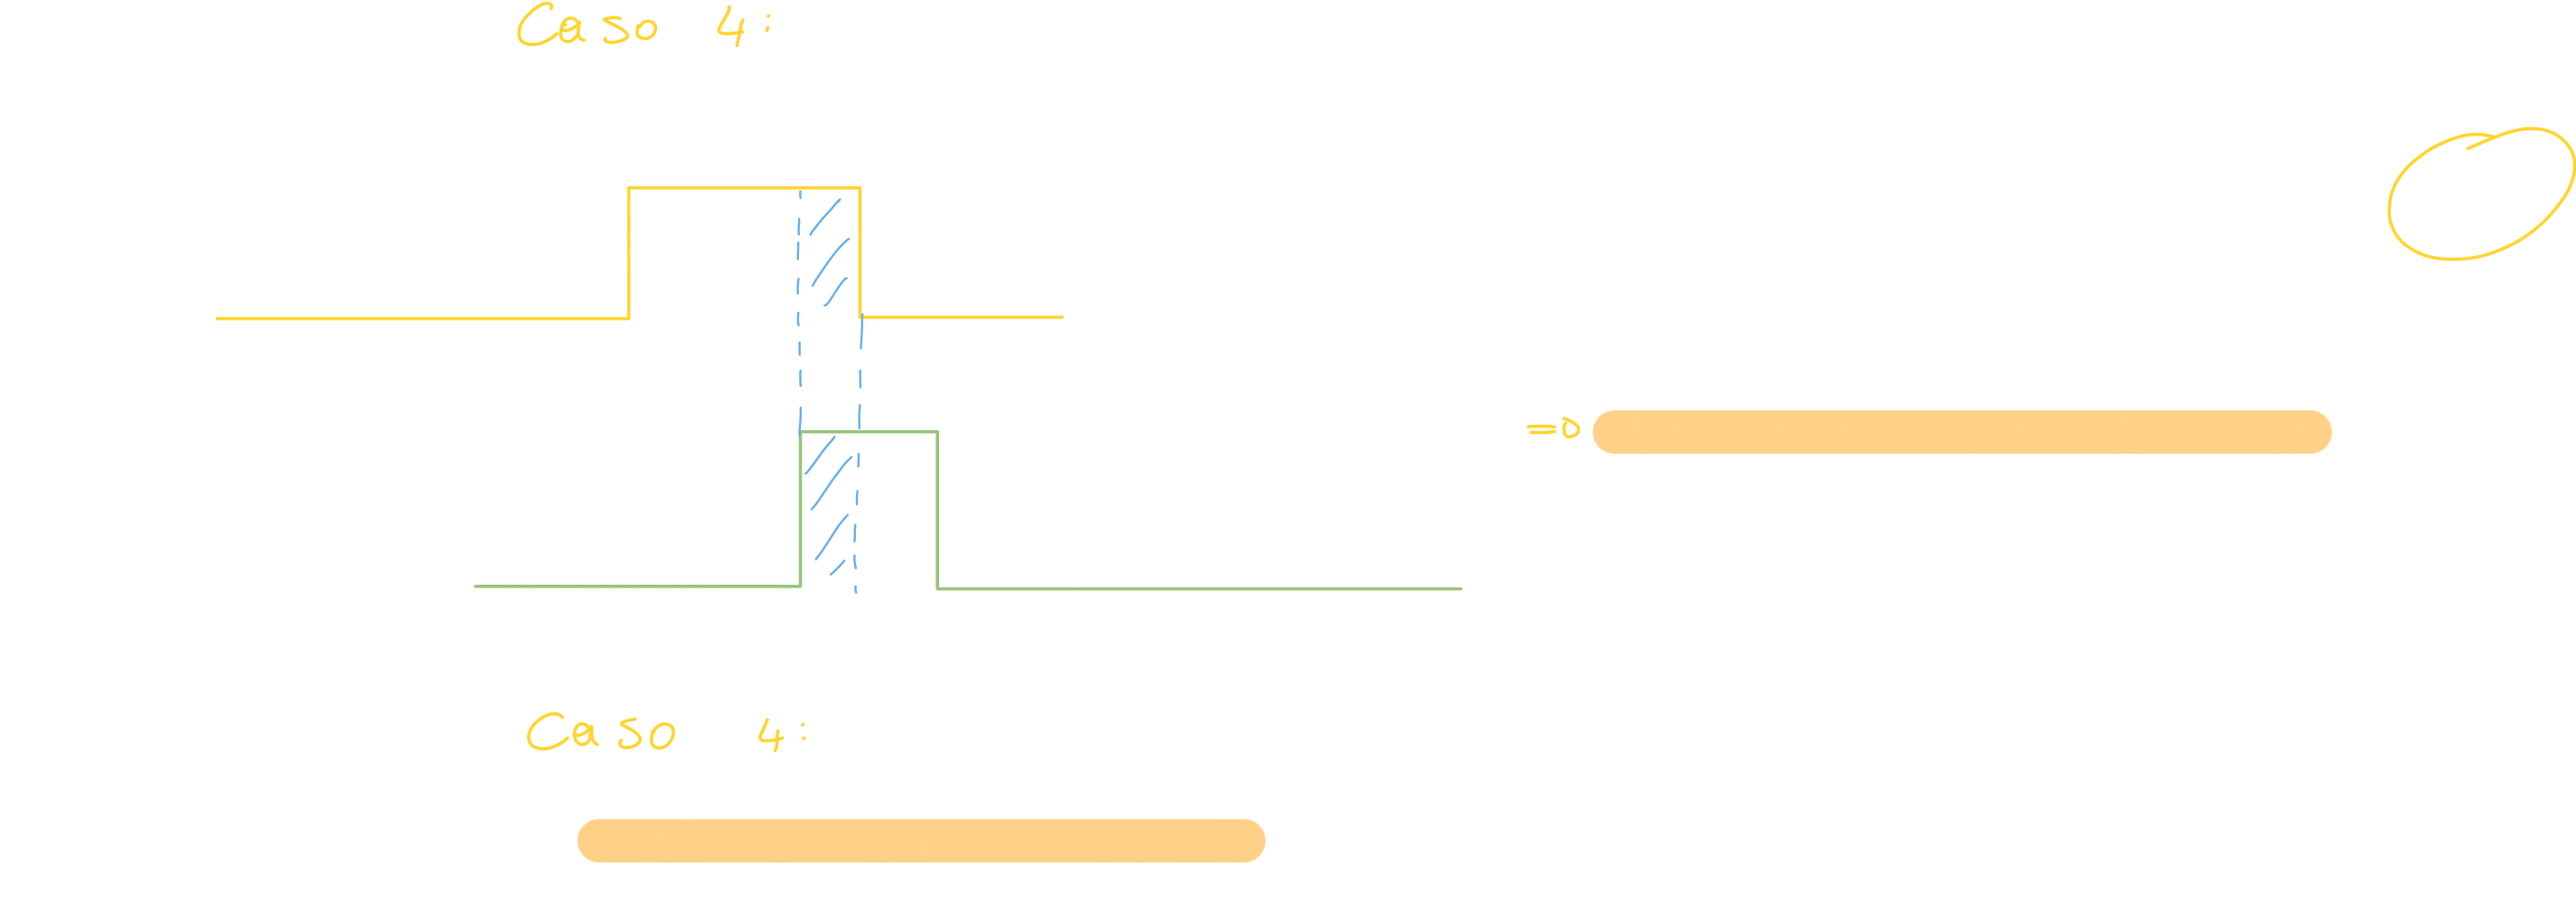 Caso 4:
=D
Caso 4: